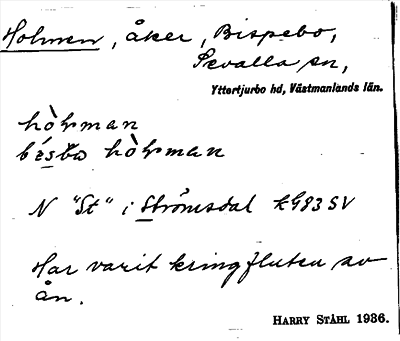 Holmen, åker, Bispebo,
Sevalla sn,
Yttertjurbo hd, Västmanlands län.
hòlman
bísba hòlman
N "St" i Strömsdal kG83SV
Har varit kringfluten av
ån.
HARRY STÅHL 1936.